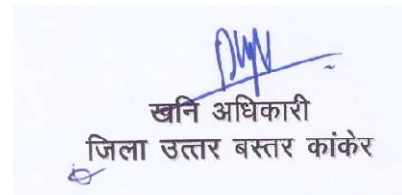 खनि अधिकारी
जिला उत्तर बस्तर कांकेर